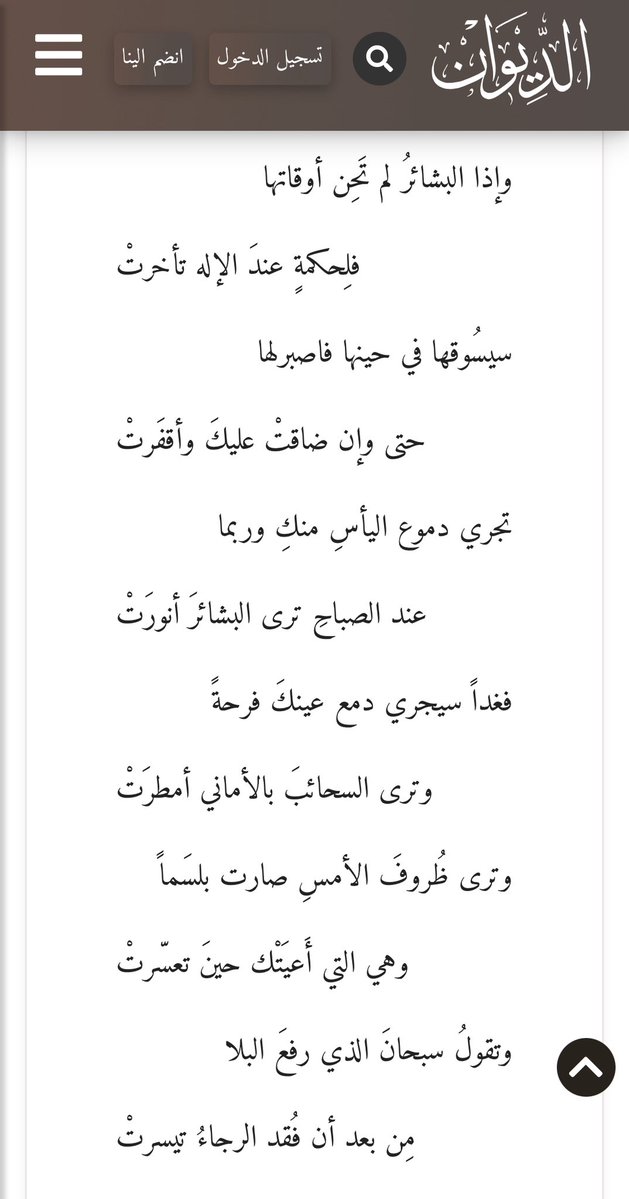 الدِّيوَان
تسجيل الدخول
انضم الينا
وإذا البشائرُ لم تَحِن أوقاتها
فلِحكمةٍ عندَ الإله تأخرتْ
سيسُوقها في حينها فاصبرلها
حتى وإن ضاقتْ عليكَ وأقفَرتْ
تجري دموع اليأسِ منكِ وربما
عند الصباحِ ترى البشائرَ أنورَتْ
فغداً سيجري دمع عينكَ فرحةً
وترى السحائبَ بالأماني أمطرَتْ
وترى ظُروفَ الأمسِ صارت بلسَماً
وهي التي أَعيَتْك حينَ تعسّرتْ
وتقولُ سبحانَ الذي رفعَ البلا
مِن بعد أن فُقد الرجاءُ تيسرتْ